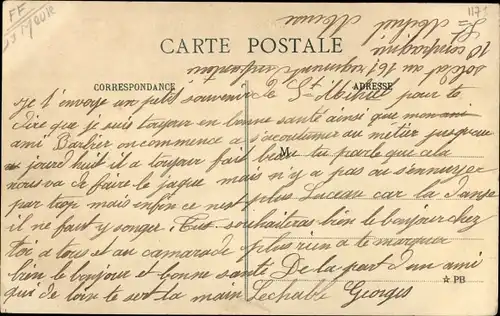 FF
1173
CARTE POSTALE
CORRESPONDANCE
ADRESSE
M
soldat au 161 régiment infanterie
10 compagnie
St Mihiel
Meuse
Je t'envoye un petit souvenir de St Mihiel pour te
dire que je suis toujour en bonne santé ainsi que mon ami
ami Barbier on commence a s'acoutumer au métier jusqu au
jourd huit il a toujour fait beau tu parle que cela
nous va de faire le jaque mais n'y a pas ou s'ennuyer
par trop mais enfin ce nest plus Luceau car la danse
il ne faut y songer. Tu souhaiteras bien le bonjour chez
toi a tous et au camarade plus rien a te marquer
bien le bonjour et bonne santé De la part d un ami
qui de loin te sert la main Lechable Georgis
☆ PB